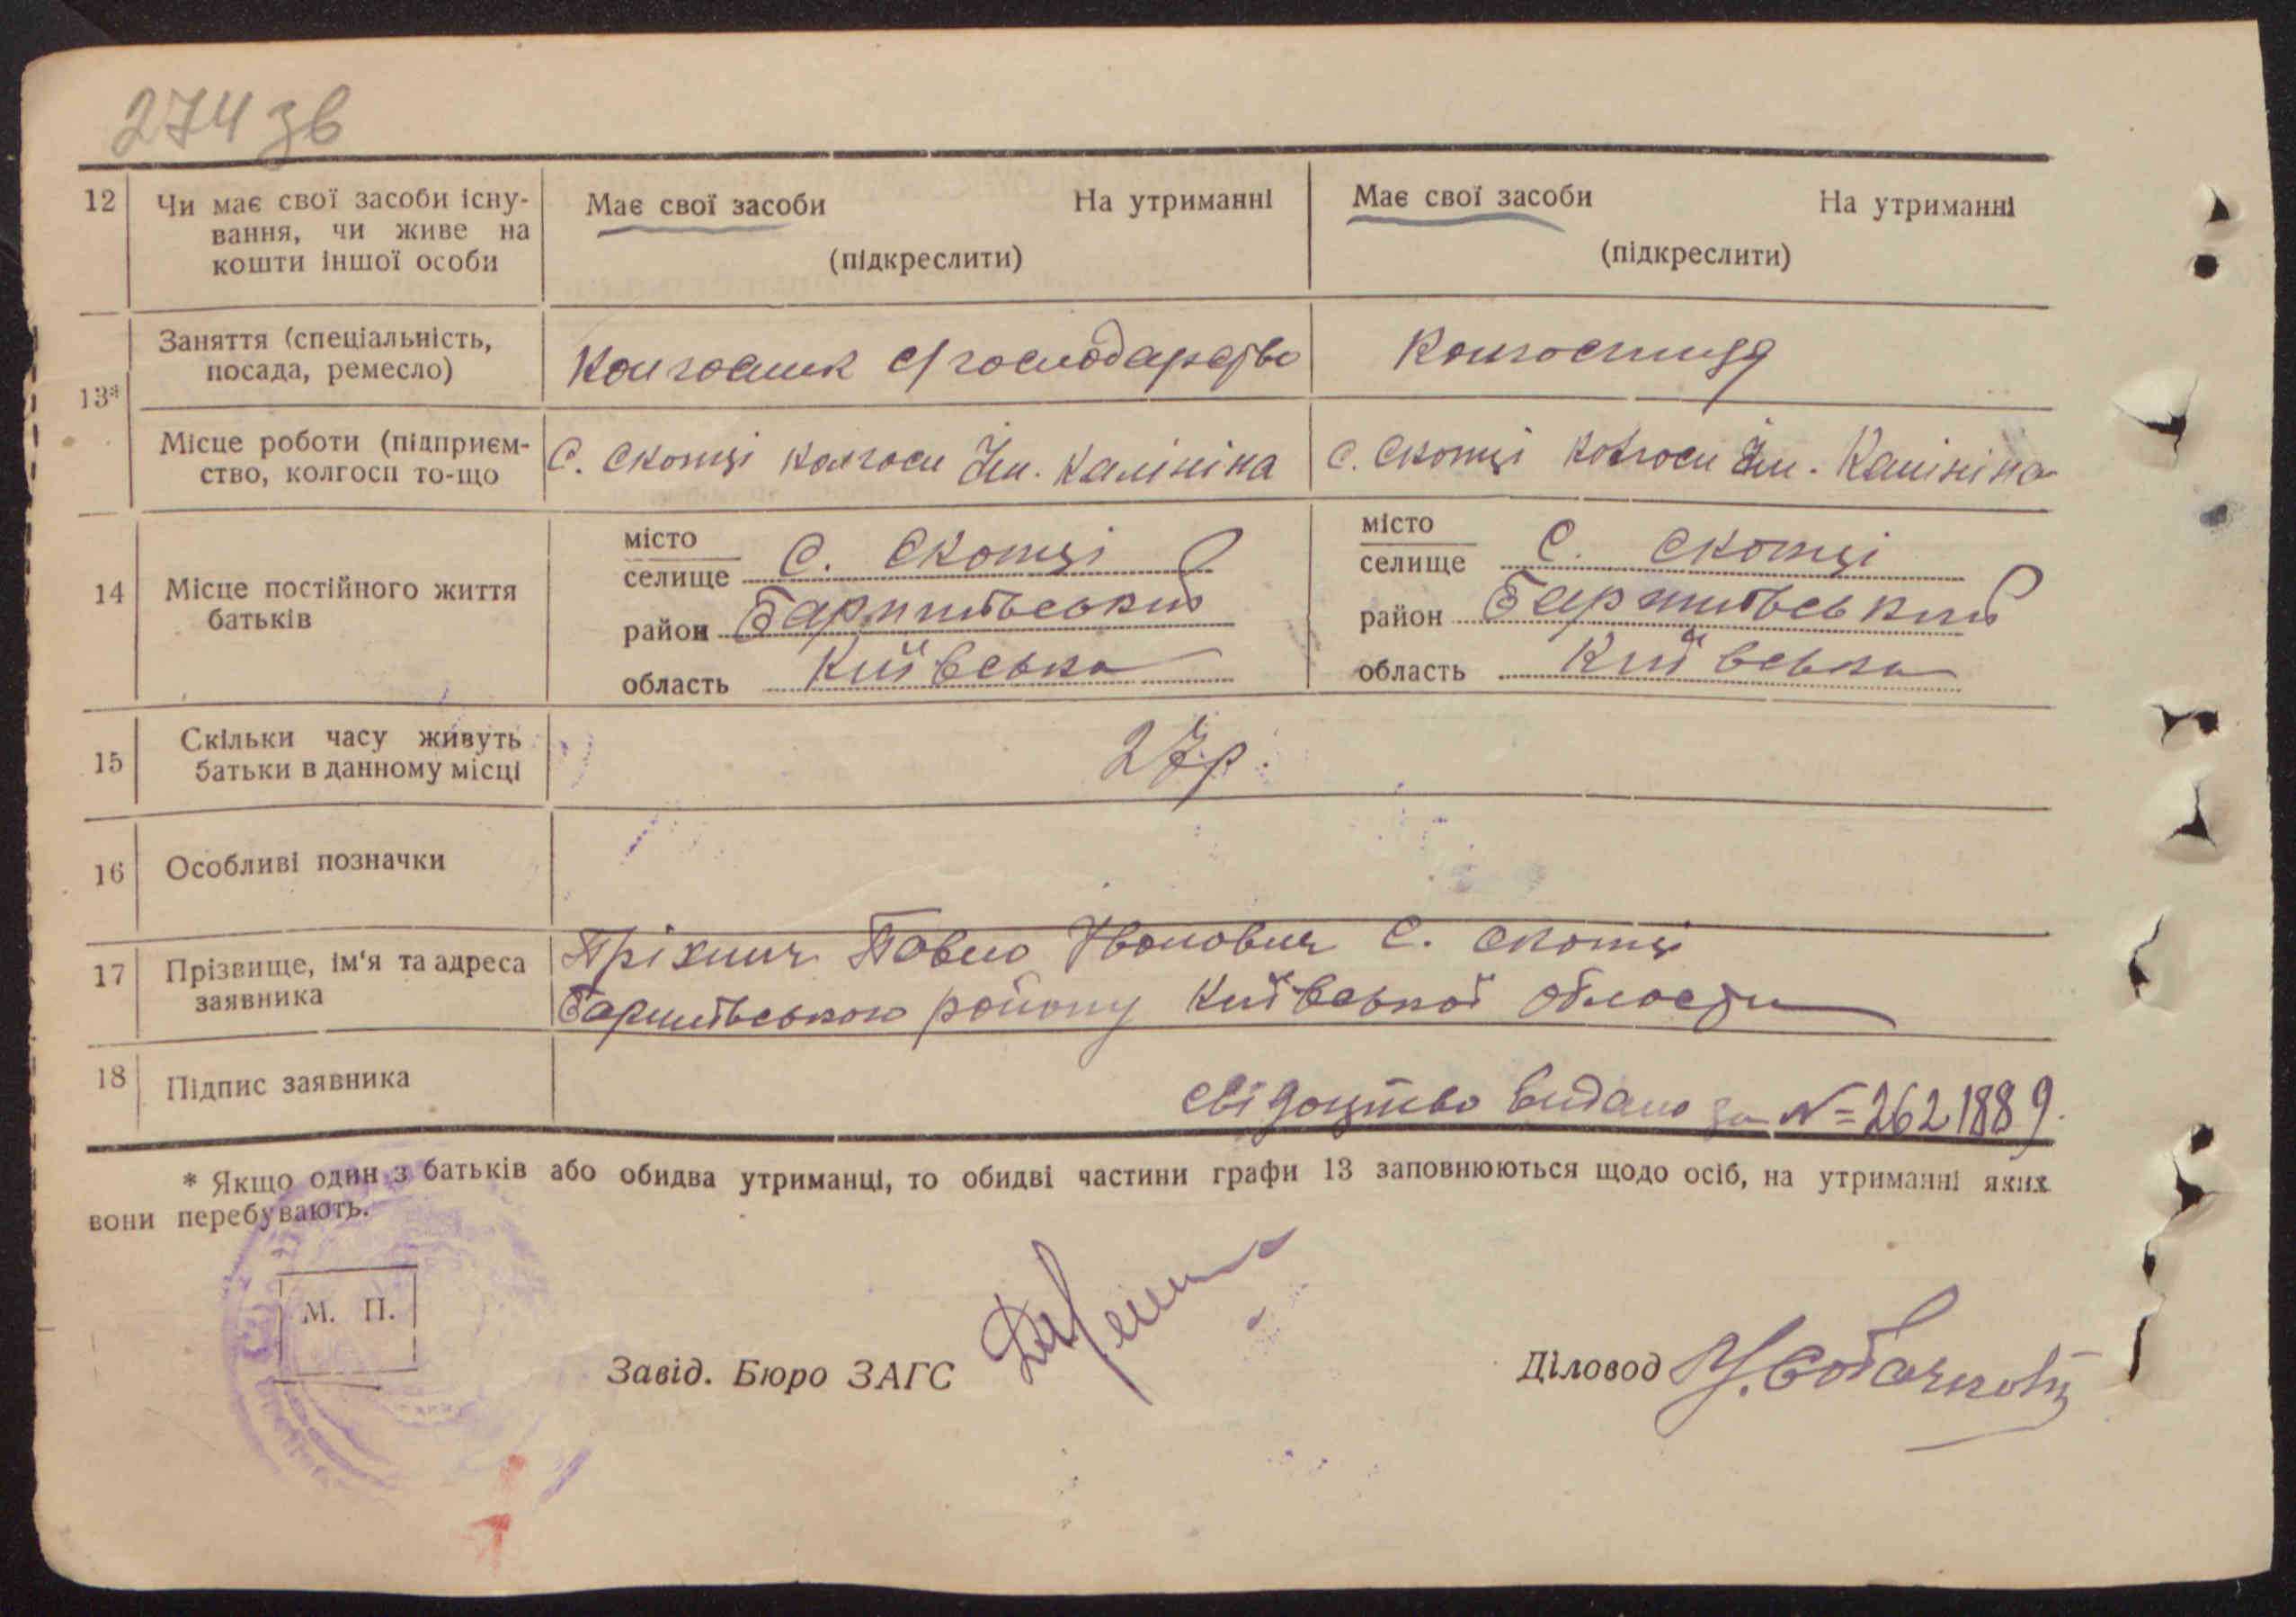 274 зв
12 Чи має свої засоби існу-
вання, чи живе на
кошти іншої особи
Має свої засоби На утриманні
(підкреслити)
Має свої засоби На утриманні
(підкреслити)
13*
Заняття (спеціальність,
посада, ремесло)
Колгосник с/господарство
Колгоспниця
Місце роботи (підприєм-
ство, колгосп то-що
С. Скопці колгосп Ім. Калініна
С. Скопці колгосп Ім. Калініна
14 Місце постійного життя
батьків
місто
селище С. Скопці
район Баришівський
область Київська
місто
селище С. Скопці
район Баришівський
область Київська
15 Скільки часу живуть
батьки в данному місці
27 р.
16 Особливі позначки
17 Прізвище, ім'я та адреса
заявника
Павло Іванович С. Скопці
Баришівського району Київської області
18 Підпис заявника
свідоцтво видано за №=2621889.
* Якщо один з батьків або обидва утриманці, то обидві частини графи 13 заповнюються щодо осіб, на утриманні яких
вони перебувають.
М. П.
Завід. Бюро ЗАГС
Діловод